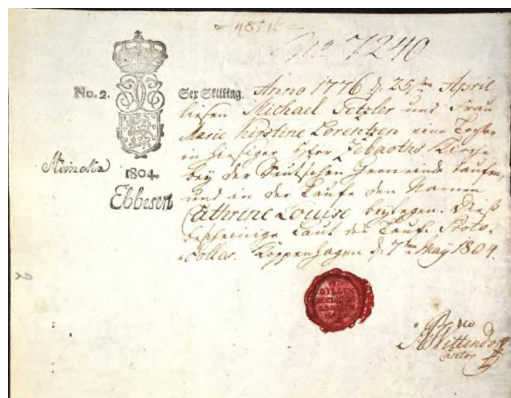 No 7240
No. 2.
Sex Skilling.
Anno 1776 d. 25ten April
ließen Michael Fetzler und Frau
Marie Kirstine Lorentzen eine Tochter
in hiesiger Zebaoths Kirche
bey der Deutschen Gemeinde taufen,
und in der Taufe den Namen
Cathrine Louise beylegen. Dieß
bescheinige laut des Taufe Proto-
colles. Koppenhagen d. 7ten May 1804.
1804.
Ebbesen
Wittendorf
Cantor